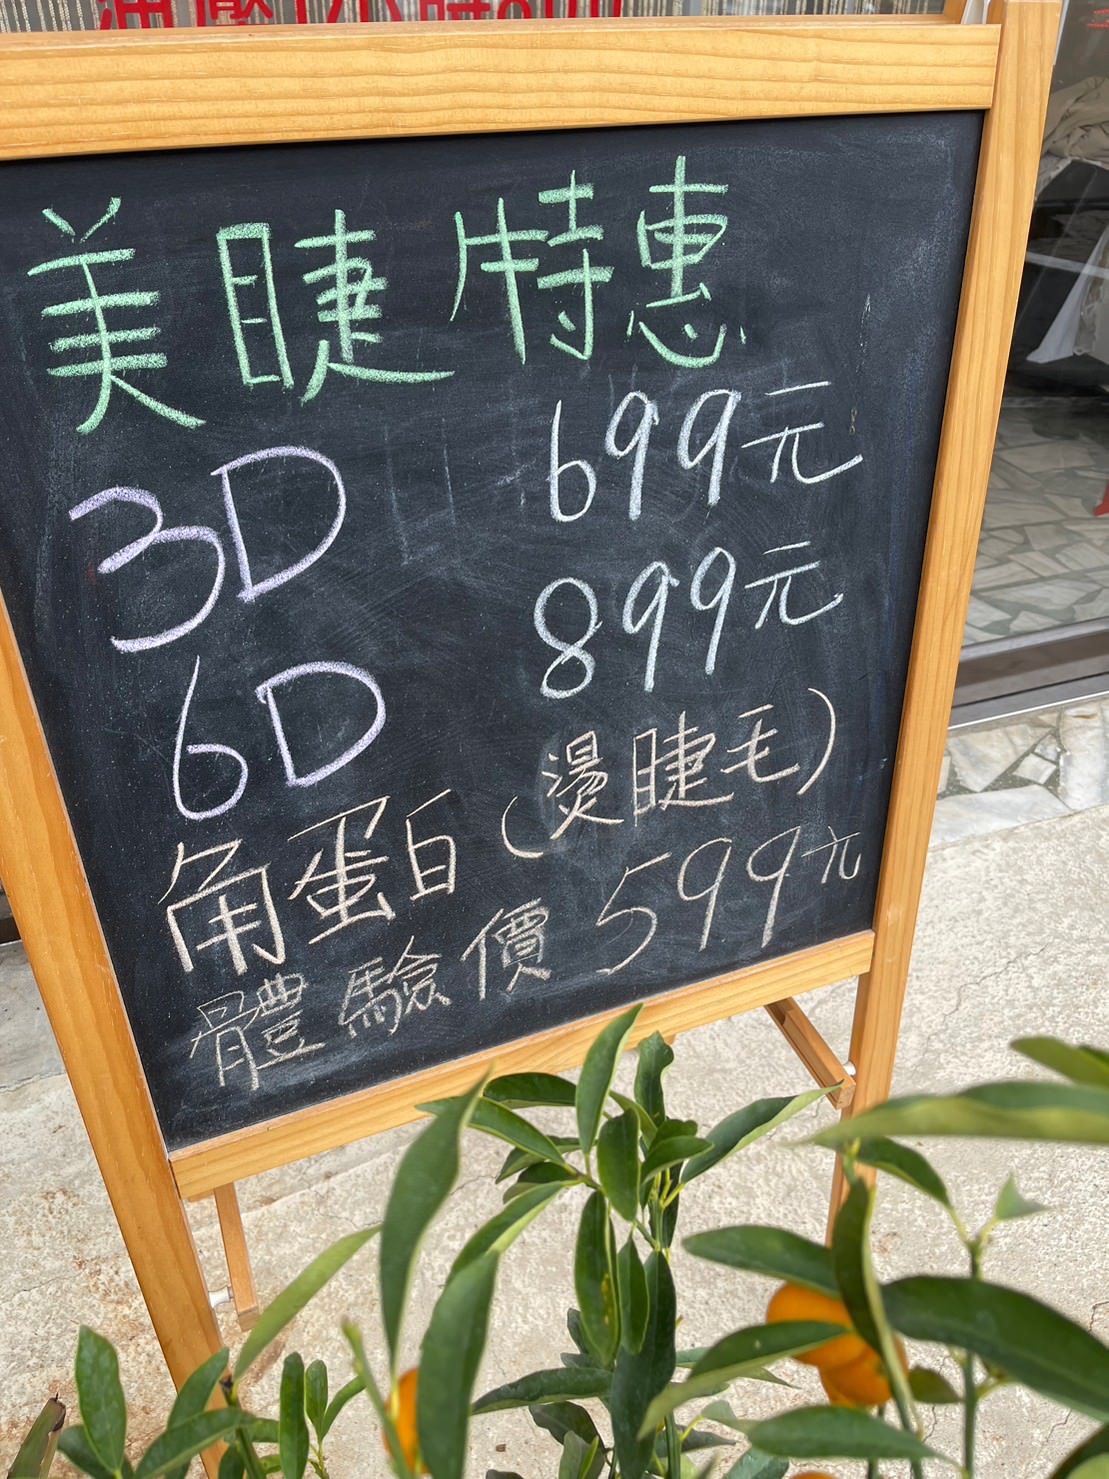 美睫特惠
3D 699元
6D 899元
角蛋白(燙睫毛)
體驗價 599元